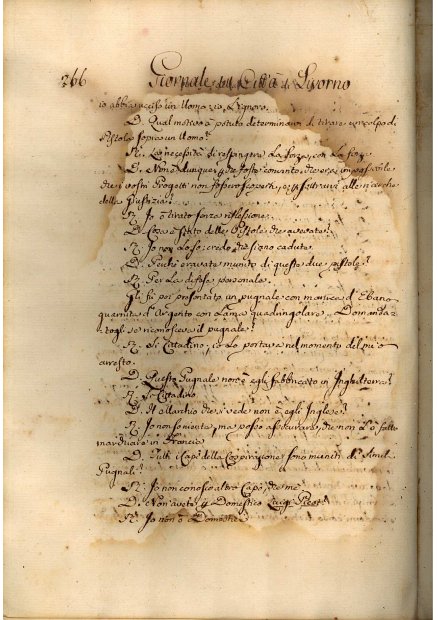 266 Giornale Citta di Livorno
io abbia ucciso un Uomo
D. Qual motivo à potuto determinarvi di tirare un colpo di
Pistola sopra un Uomo?
R. La necessità di respingere la forza, con la forza
D. Non
che i vostri Progetti non
della Giustizia?
R. Io ò tirato senza riflessione
D. Cosa è stato delle Pistole che avevate?
R. Io non lo so; credo che siano cadute
D. Perché eravate munito di queste due pistole?
R. Per la difesa personale.
Gli fù poi presentato un pugnale con manico d'Ebano
guarnito d'Argento con Lama quadrangolare. Domanda:
togli se riconosceva il pugnale?
R. Si Cittadino, io lo portava nel momento del mio
arresto.
D. Questo Pugnale non è egli fabbricato in Inghilterra?
R. Cittadino
D. Il Marchio che si vede non è egli Inglese?
R. Io non so niente, ma posso assicurarvi, che non l'ò fatto
marchiare in Francia
D. Tutti i Capi della Cospirazione sono muniti di simil
Pugnali?
R. Io non conosco altro Capo, che me
D. Non avete p. Domestico Luigi Picot?
R. Io non ò Domestico